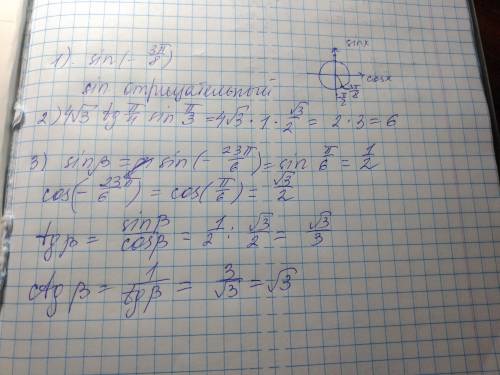 1) sin(-3π/8)
sin отрицательный
sinx
cosx
2) 4√3 tg π/4 sin π/3 = 4√3 · 1 · √3/2 = 2 · 3 = 6
3) sinβ = sin(-23π/6) = sin π/6 = 1/2
cos(-23π/6) = cos(π/6) = √3/2
tgβ = sinβ/cosβ = 1/2 : √3/2 = √3/3
ctgβ = 1/tgβ = 3/√3 = √3